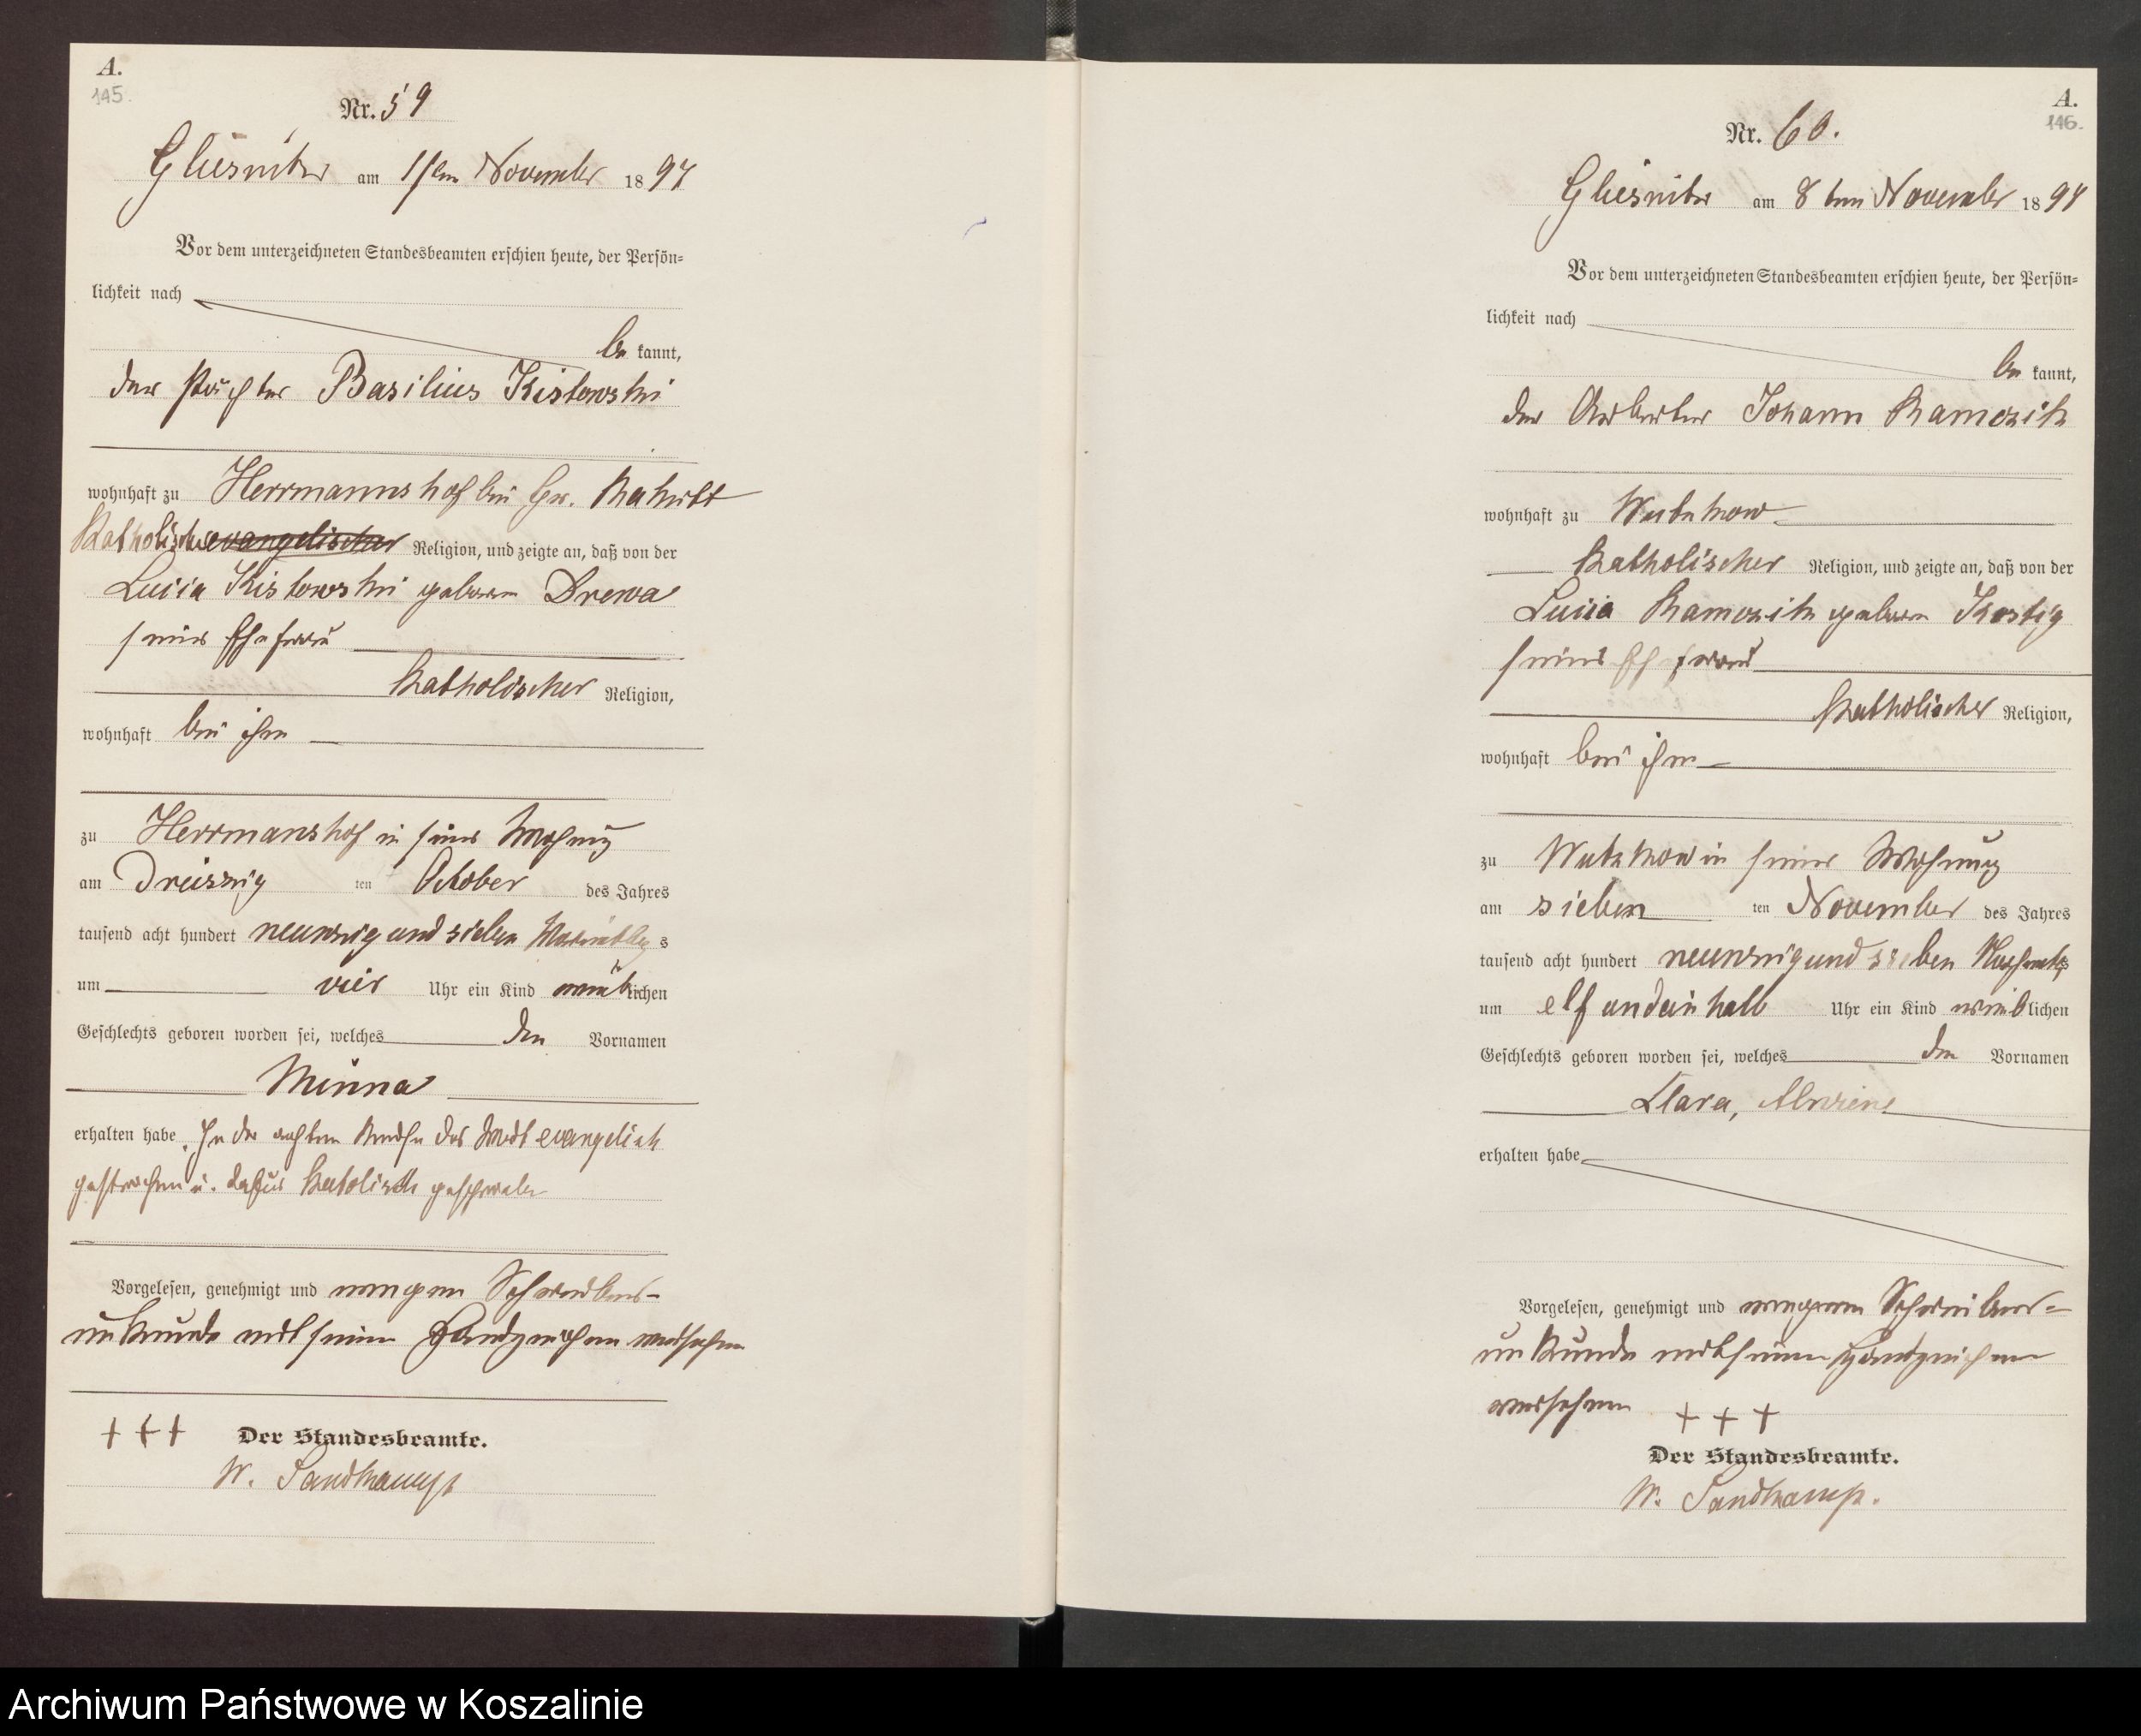 A.
145.
Nr. 59
Gliesnitz am 1ten November 1897
Vor dem unterzeichneten Standesbeamten erschien heute, der Persön-
lichkeit nach
be kannt,
der Pächter Basilius Kistowski
wohnhaft zu Herrmannshof bei Gr.
Katholischer evangelischer Religion, und zeigte an, daß von der
Luisa Kistowski geboren Drewa
seiner Ehefrau
Katholischer Religion,
wohnhaft bei ihm
zu Herrmanshof in seiner Wohnung
am Dreiszig ten October des Jahres
tausend acht hundert neunzig und sieben Vormittags
um vier Uhr ein Kind weiblichen
Geschlechts geboren worden sei, welches den Vornamen
Minna
erhalten habe. In der achten Reihe das Wort evangelisch
gestrichen u. dafür Katolisch geschrieben
Vorgelesen, genehmigt und wegen Schreibens-
unkunde mit seinem Handzeichen versehen
+++ Der Standesbeamte.
W. Sandkamp
A.
146.
Nr. 60.
Gliesnitz am 8ten November 1897
Vor dem unterzeichneten Standesbeamten erschien heute, der Persön-
lichkeit nach
be kannt,
der Arbeiter Johann Kamozik
wohnhaft zu Wutzkow
Katholischer Religion, und zeigte an, daß von der
Luisa Kamozik geboren Kostig
seiner Ehefrau
Katholischer Religion,
wohnhaft bei ihm
zu Wutzkow in seiner Wohnung
am sieben ten November des Jahres
tausend acht hundert neunzig und sieben Nachmittags
um elf undeinhalb Uhr ein Kind weiblichen
Geschlechts geboren worden sei, welches den Vornamen
Clara, Alwine
erhalten habe
Vorgelesen, genehmigt und wegen Schreibens-
unkunde mit seinem Handzeichen
versehen +++
Der Standesbeamte.
W. Sandkamp.
Archiwum Państwowe w Koszalinie